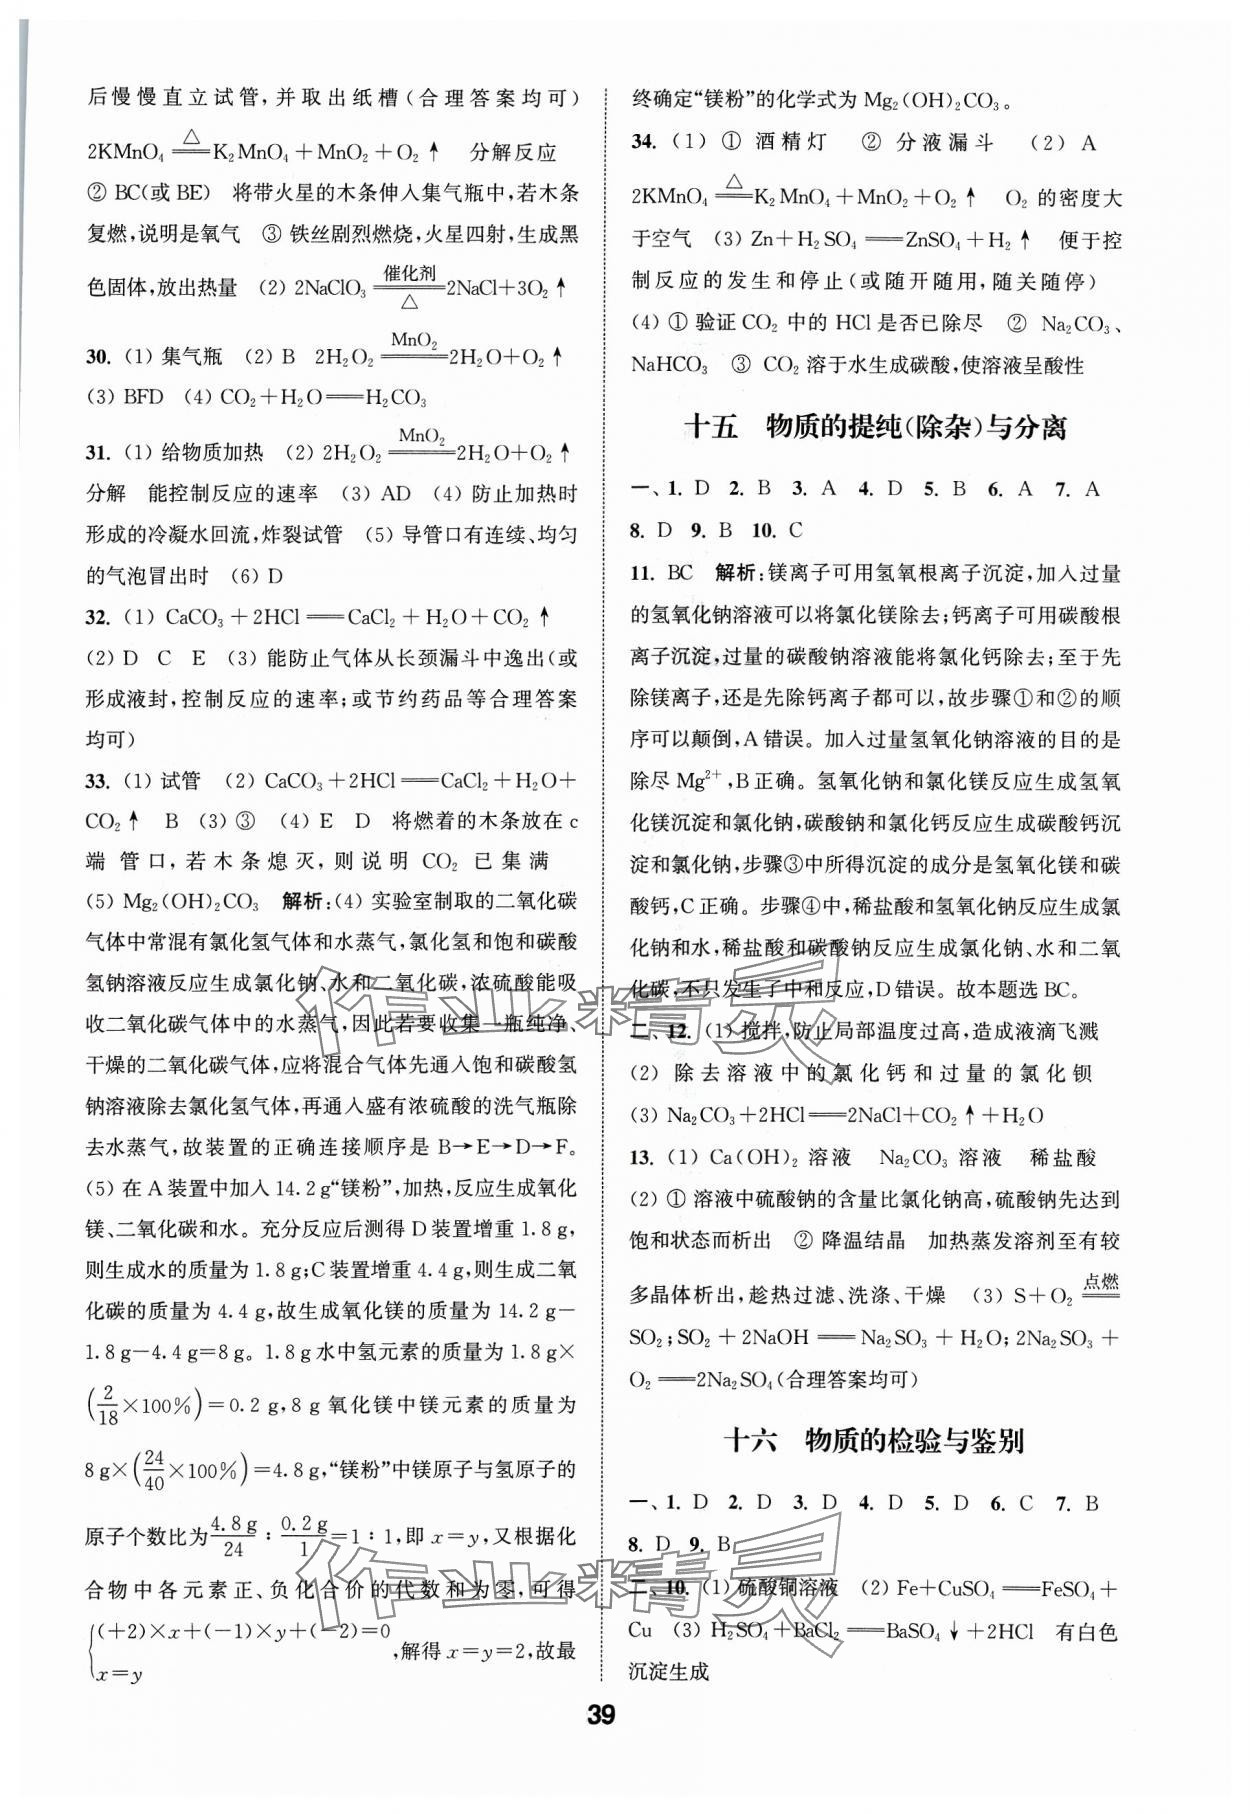 后慢慢直立试管,并取出纸槽(合理答案均可)
2KMnO₄ =△= K₂MnO₄+MnO₂+O₂↑ 分解反应
② BC(或BE) 将带火星的木条伸入集气瓶中,若木条
复燃,说明是氧气 ③ 铁丝剧烈燃烧,火星四射,生成黑
色固体,放出热量 (2) 2NaClO₃ =催化剂/△= 2NaCl+3O₂↑
30. (1) 集气瓶 (2) B 2H₂O₂ =MnO₂= 2H₂O+O₂↑
(3) BFD (4) CO₂+H₂O══H₂CO₃
31. (1) 给物质加热 (2) 2H₂O₂ =MnO₂= 2H₂O+O₂↑
分解 能控制反应的速率 (3) AD (4) 防止加热时
形成的冷凝水回流,炸裂试管 (5) 导管口有连续、均匀
的气泡冒出时 (6) D
32. (1) CaCO₃+2HCl══CaCl₂+H₂O+CO₂↑
(2) D C E (3) 能防止气体从长颈漏斗中逸出(或
形成液封,控制反应的速率;或节约药品等合理答案
均可)
33. (1) 试管 (2) CaCO₃+2HCl══CaCl₂+H₂O+
CO₂↑ B (3) ③ (4) E D 将燃着的木条放在c
端管口,若木条熄灭,则说明CO₂已集满
(5) Mg₂(OH)₂CO₃ 解析:(4) 实验室制取的二氧化碳
气体中常混有氯化氢气体和水蒸气,氯化氢和饱和碳酸
氢钠溶液反应生成氯化钠、水和二氧化碳,浓硫酸能吸
收二氧化碳气体中的水蒸气,因此若要收集一瓶纯净、
干燥的二氧化碳气体,应将混合气体先通入饱和碳酸氢
钠溶液除去氯化氢气体,再通入盛有浓硫酸的洗气瓶除
去水蒸气,故装置的正确连接顺序是B→E→D→F。
(5) 在A装置中加入14.2 g“镁粉”,加热,反应生成氧化
镁、二氧化碳和水。充分反应后测得D装置增重1.8 g,
则生成水的质量为1.8 g;C装置增重4.4 g,则生成二氧
化碳的质量为4.4 g,故生成氧化镁的质量为14.2 g−
1.8 g−4.4 g=8 g。1.8 g水中氢元素的质量为1.8 g×
(2/18×100%)=0.2 g,8 g氧化镁中镁元素的质量为
8 g×(24/40×100%)=4.8 g,“镁粉”中镁原子与氢原子的
原子个数比为4.8 g/24∶0.2 g/1=1∶1,即x=y,又根据化
合物中各元素正、负化合价的代数和为零,可得
{(+2)×x+(−1)×y+(−2)=0
x=y ,解得x=y=2,故最
终确定“镁粉”的化学式为Mg₂(OH)₂CO₃。
34. (1) ① 酒精灯 ② 分液漏斗 (2) A
2KMnO₄ =△= K₂MnO₄+MnO₂+O₂↑ O₂的密度大
于空气 (3) Zn+H₂SO₄══ZnSO₄+H₂↑ 便于控
制反应的发生和停止(或随开随用,随关随停)
(4) ① 验证CO₂中的HCl是否已除尽 ② Na₂CO₃、
NaHCO₃ ③ CO₂溶于水生成碳酸,使溶液呈酸性
十五 物质的提纯(除杂)与分离
一、1. D 2. B 3. A 4. D 5. B 6. A 7. A
8. D 9. B 10. C
11. BC 解析:镁离子可用氢氧根离子沉淀,加入过量
的氢氧化钠溶液可以将氯化镁除去;钙离子可用碳酸根
离子沉淀,过量的碳酸钠溶液能将氯化钙除去;至于先
除镁离子,还是先除钙离子都可以,故步骤①和②的顺
序可以颠倒,A错误。加入过量氢氧化钠溶液的目的是
除尽Mg²⁺,B正确。氢氧化钠和氯化镁反应生成氢氧
化镁沉淀和氯化钠,碳酸钠和氯化钙反应生成碳酸钙沉
淀和氯化钠,步骤③中所得沉淀的成分是氢氧化镁和碳
酸钙,C正确。步骤④中,稀盐酸和氢氧化钠反应生成氯
化钠和水,稀盐酸和碳酸钠反应生成氯化钠、水和二氧
化碳,不只发生了中和反应,D错误。故本题选BC。
二、12. (1) 搅拌,防止局部温度过高,造成液滴飞溅
(2) 除去溶液中的氯化钙和过量的氯化钡
(3) Na₂CO₃+2HCl══2NaCl+CO₂↑+H₂O
13. (1) Ca(OH)₂溶液 Na₂CO₃溶液 稀盐酸
(2) ① 溶液中硫酸钠的含量比氯化钠高,硫酸钠先达到
饱和状态而析出 ② 降温结晶 加热蒸发溶剂至有较
多晶体析出,趁热过滤、洗涤、干燥 (3) S+O₂ =点燃=
SO₂;SO₂+2NaOH══Na₂SO₃+H₂O;2Na₂SO₃+
O₂══2Na₂SO₄(合理答案均可)
十六 物质的检验与鉴别
一、1. D 2. D 3. D 4. D 5. D 6. C 7. B
8. D 9. B
二、10. (1) 硫酸铜溶液 (2) Fe+CuSO₄══FeSO₄+
Cu (3) H₂SO₄+BaCl₂══BaSO₄↓+2HCl 有白色
沉淀生成
39
作业精灵
作业精灵